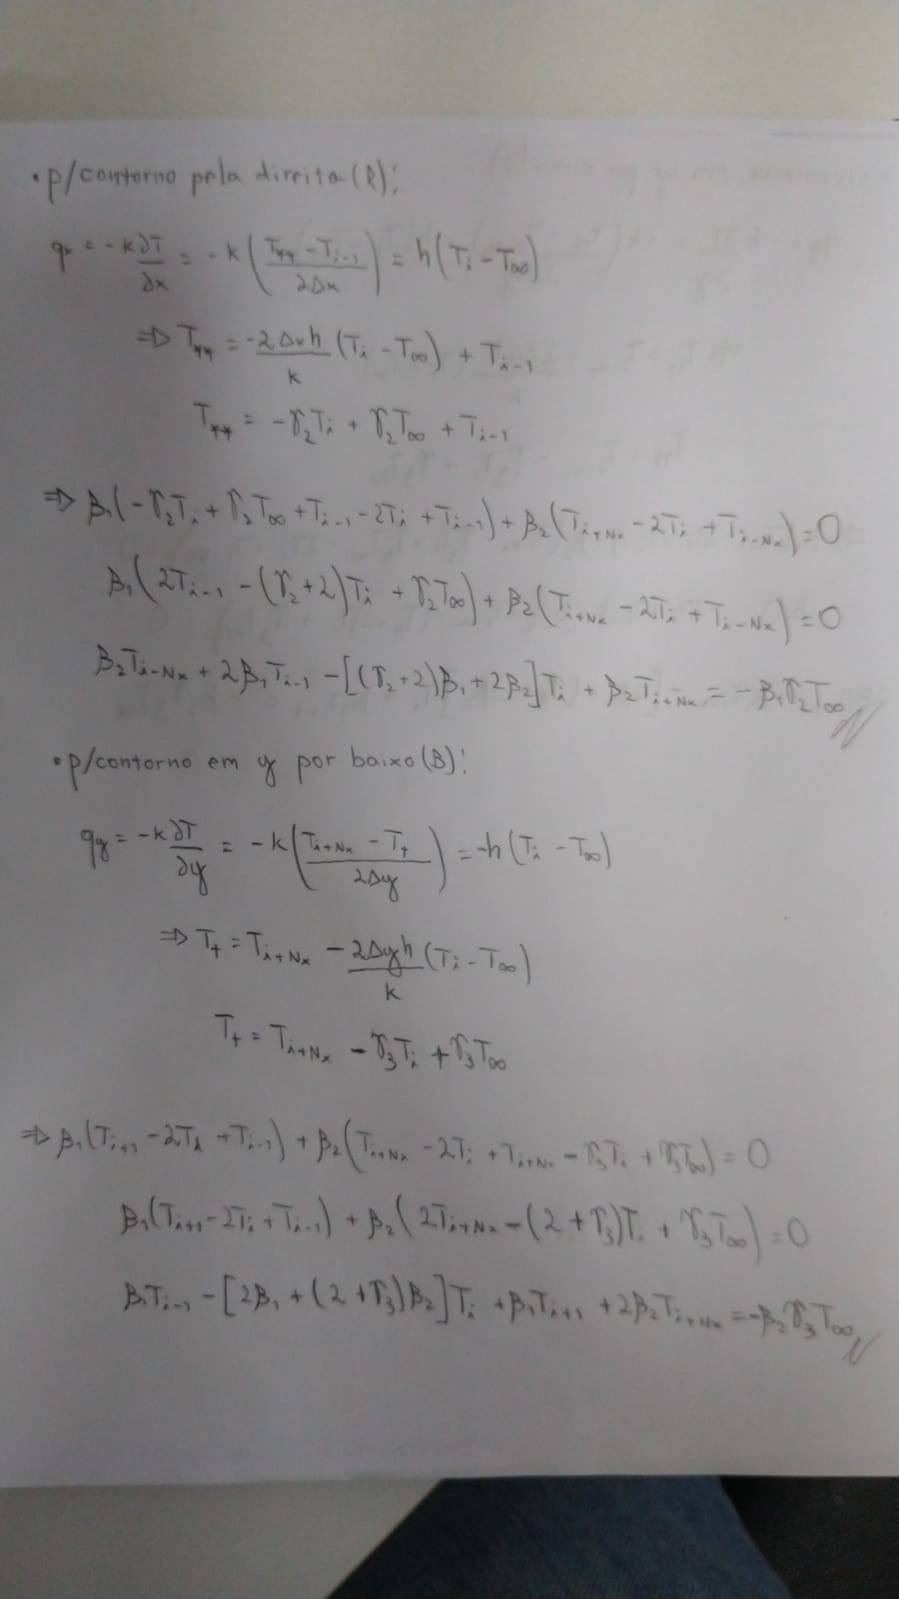 • p/contorno pela direita (R):
qx = -k ∂T/∂x = -k ( (T** - Ti-1) / 2Δx ) = h(Ti - T∞)
⇒ T** = -2Δxh/k (Ti - T∞) + Ti-1
T** = -γ2Ti + γ2T∞ + Ti-1
⇒ β1(-γ2Ti + γ2T∞ + Ti-1 - 2Ti + Ti-1) + β2(Ti+Nx - 2Ti + Ti-Nx) = 0
β1(2Ti-1 - (γ2+2)Ti + γ2T∞) + β2(Ti+Nx - 2Ti + Ti-Nx) = 0
β2Ti-Nx + 2β1Ti-1 - [(γ2+2)β1 + 2β2]Ti + β2Ti+Nx = -β1γ2T∞
• p/contorno em y por baixo (B):
qy = -k ∂T/∂y = -k ( (Ti+Nx - T+) / 2Δy ) = -h(Ti - T∞)
⇒ T+ = Ti+Nx - 2Δyh/k (Ti - T∞)
T+ = Ti+Nx - γ3Ti + γ3T∞
⇒ β1(Ti+1 - 2Ti + Ti-1) + β2(Ti+Nx - 2Ti + Ti+Nx - γ3Ti + γ3T∞) = 0
β1(Ti+1 - 2Ti + Ti-1) + β2(2Ti+Nx - (2+γ3)Ti + γ3T∞) = 0
β1Ti-1 - [2β1 + (2+γ3)β2]Ti + β1Ti+1 + 2β2Ti+Nx = -β2γ3T∞